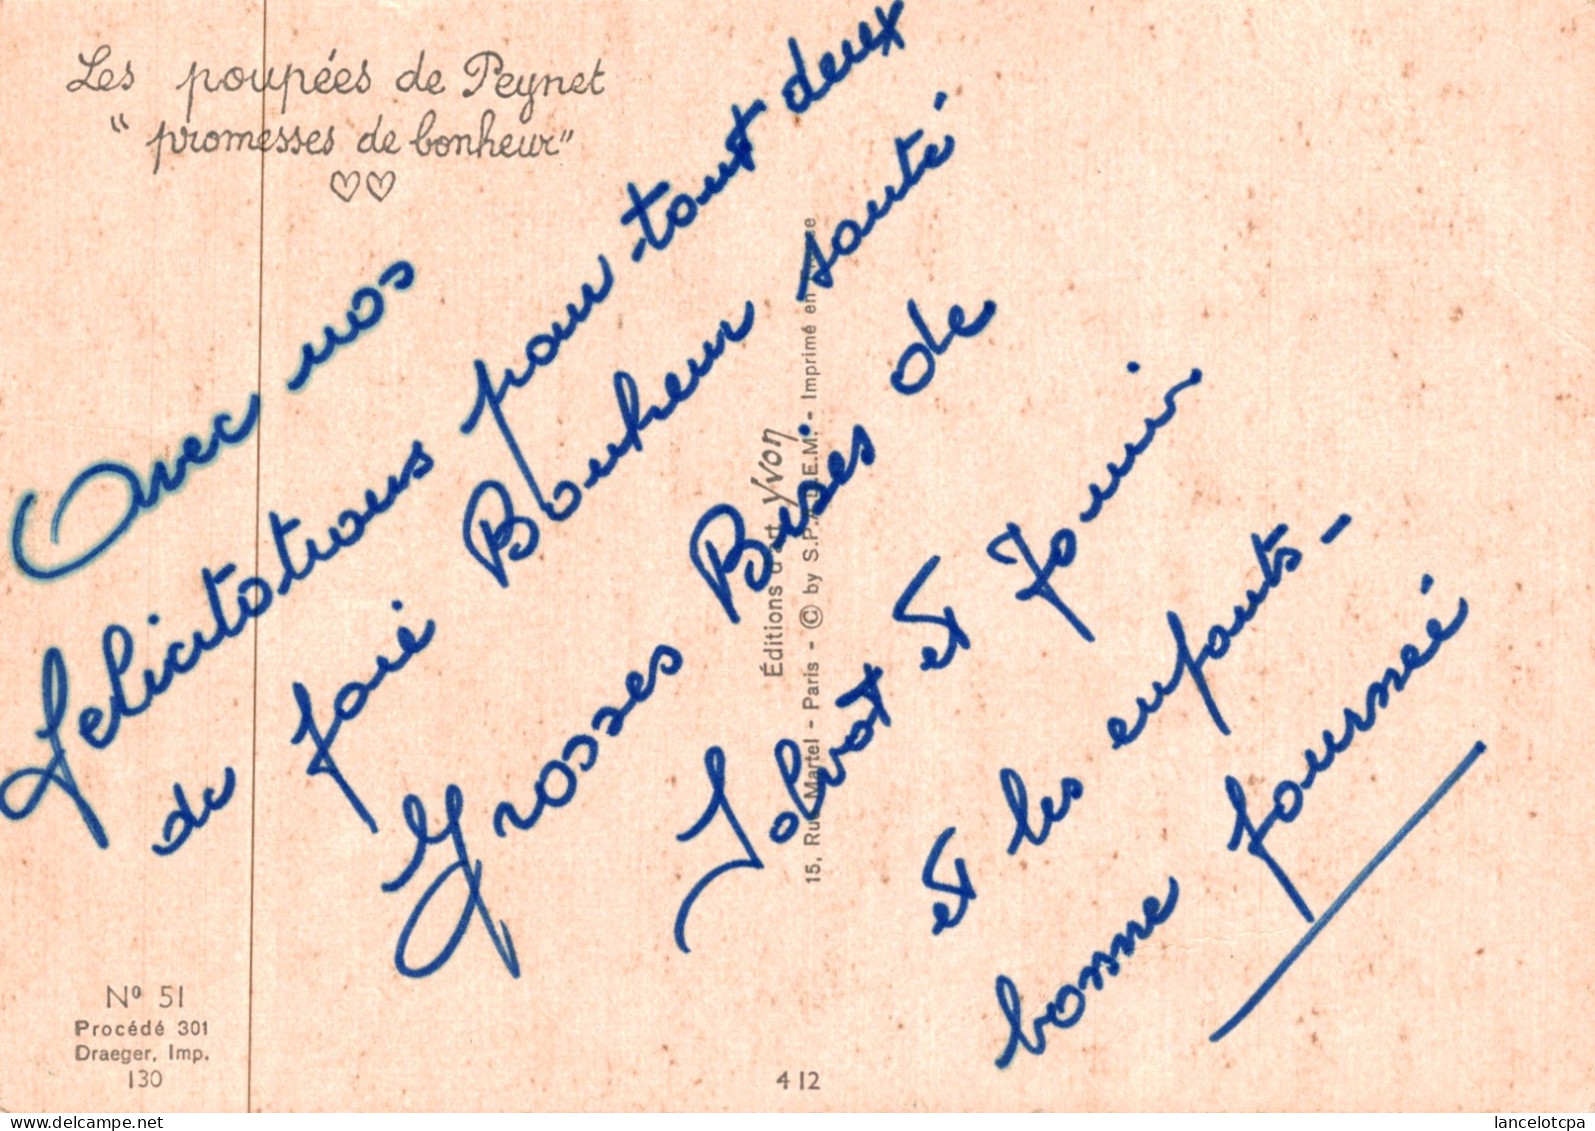 Les poupées de Peynet
"promesses de bonheur"
Avec nos
felicitations pour tout deux
de joie Bonheur santé
Grosses Bises de
et
et les enfants -
bonne journée
Éditions d'art Yvon
15, Rue Martel - Paris - © by S.P.A.D.E.M. - Imprimé en
Nº 51
Procédé 301
Draeger, Imp.
130
412
www.delcampe.net
lancelotcpa